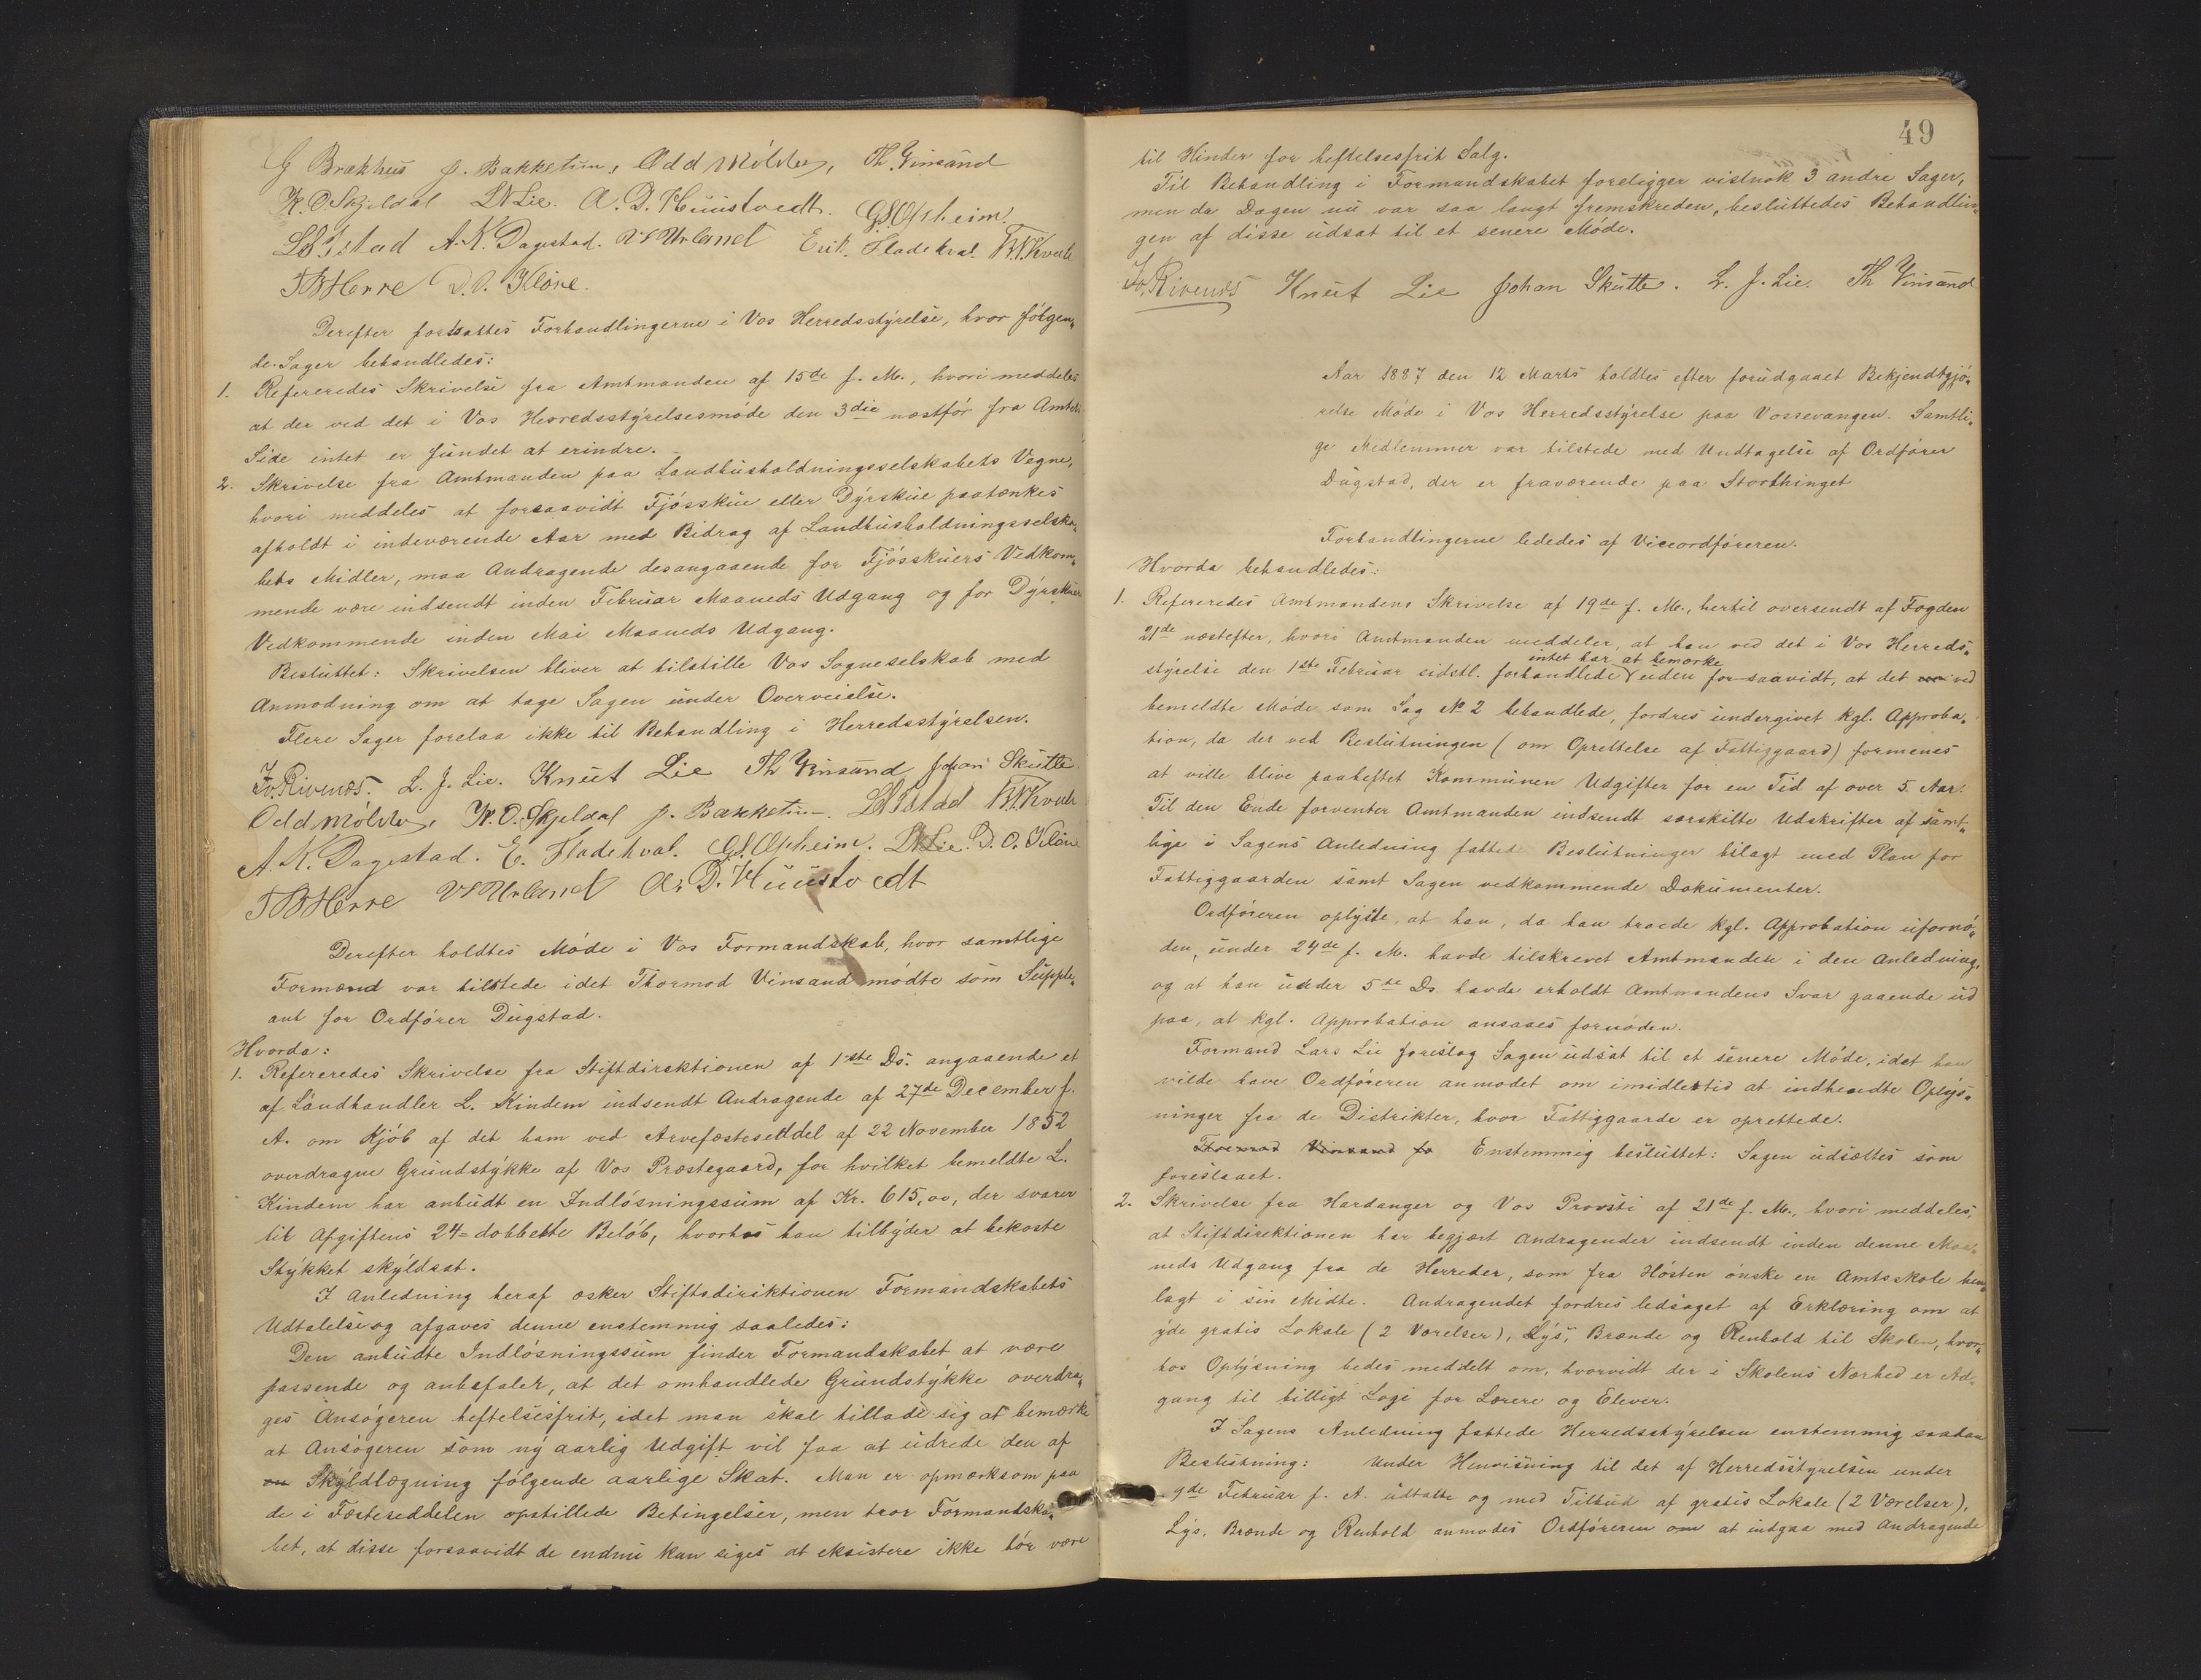 G Brækhus J. Bakketun, Odd Mölster, Th. Vinsand
K. O. Skjeldal LNLie. A. D. Hüüstvedt. G.S.Opheim.
A. K. Dagestad. Erik Fladekval BTKvale
TBHerre D. O. Klöve.
Derefter fortsattes Forhandlingerne i Vos Herredsstyrelse, hvor følgen„
de Sager behandledes:
1. Refereredes Skrivelse fra Amtmanden af 15de f. M., hvori meddeles
at der ved det i Vos Herredsstyrelsesmøde den 3die næstfør fra Amtets
Side intet er fundet at erindre.
2. Skrivelse fra Amtmanden paa Landhusholdningsselskabets Vegne,
hvori meddeles at forsaavidt Fjøsskue eller Dyrskue paatænkes
afholdt i indeværende Aar med Bidrag af Landhusholdningsselska„
bets Midler, maa Andragende desangaaende for Fjøsskuers Vedkom„
mende være indsendt inden Februar Maaneds Udgang og for Dyrskuers
Vedkommende inden Mai Maaneds Udgang.
Besluttet: Skrivelsen bliver at tilstille Vos Sogneselskab med
Anmodning om at tage Sagen under Overveielse.
Flere Sager forelaa ikke til Behandling i Herredsstyrelsen.
Iv. Rivenæs. L. J. Lie. Knut Lie Th Vinsand Johan Skutle
Odd Mölster, K. O. Skjeldal J. Bakketun. BTKvale
A. K. Dagestad. E. Fladekval. GS.Opheim. LNLie. D. O. Klöve
TBHerre A. D. Hüüstvedt
Derefter holdtes Møde i Vos Formandskab, hvor samtlige
Formænd var tilstede idet Thormod Vinsand mødte som Supple„
ant for Ordfører Dugstad.
Hvorda:
1. Refereredes Skrivelse fra Stiftdirektionen af 1ste Ds. angaaende et
af Landhandler L. Kindem indsendt Andragende af 27de December f.
A. om Kjøb af det ham ved Arvefæsteseddel af 22 November 1852
overdragne Grundstykke af Vos Præstegaard, for hvilket bemeldte L.
Kindem har anbudt en Indløsningssum af Kr. 615,00, der svarer
til Afgiftens 24-dobbelte Beløb, hvorhos han tilbyder at bekoste
Stykket skyldsat.
I Anledning heraf æsker Stiftsdirektionen Formandskabets
Udtalelse og afgaves denne enstemmig saaledes:
Den anbudte Indløsningssum finder Formandskabet at være
passende og anbefaler, at det omhandlede Grundstykke overdra„
ges Ansøgeren heftelsesfrit, idet man skal tillade sig at bemærke
at Ansøgeren som ny aarlig Udgift vil faa at udrede den af
en Skyldlægning følgende aarlige Skat. Man er opmærksom paa
de i Fæsteseddelen opstillede Betingelser, men tror Formandska„
bet, at disse forsaavidt de endnu kan siges at eksistere ikke bør være
49
til Hinder for heftelsesfrit Salg.
Til Behandling i Formandskabet foreligger vistnok 3 andre Sager,
men da Dagen nu var saa langt fremskreden, besluttedes Behandlin„
gen af disse udsat til et senere Møde.
Iv. Rivenæs Knut Lie Johan Skutle. L. J. Lie. Th Vinsand
Aar 1887 den 12 Marts holdtes efter forudgaaet Bekjendtgjø„
relse Møde i Vos Herredsstyrelse paa Vossevangen. Samtli„
ge Medlemmer var tilstede med Undtagelse af Ordfører
Dugstad, der er fraværende paa Storthinget
Forhandlingerne lededes af Viceordføreren.
Hvorda behandledes:
1. Refereredes Amtmandens Skrivelse af 19de f. M., hertil oversendt af Fogden
21de næstefter, hvori Amtmanden meddeler, at han ved det i Vos Herreds„
intet har at bemærke
styrelse den 1ste Februar sidstl. forhandlede uden for saavidt, at det ved
bemeldte Møde som Sag No 2 behandlede, fordres undergivet kgl. Approba„
tion, da der ved Beslutningen (om Oprettelse af Fattiggaard) formenes
at ville blive paaheftet Kommunen Udgifter for en Tid af over 5 Aar.
Til den Ende forventer Amtmanden indsendt særskilte Udskrifter af samt„
lige i Sagens Anledning fattede Beslutninger bilagt med Plan for
Fattiggaarden samt Sagen vedkommende Dokumenter.
Ordføreren oplyste, at han, da han troede kgl. Approbation ufornø„
den, under 24de f. M. havde tilskrevet Amtmanden i den Anledning,
og at han under 5te Ds. havde erholdt Amtmandens Svar gaaende ud
paa, at kgl. Approbation ansaaes fornøden.
Formand Lars Lie foreslog Sagen udsat til et senere Møde, idet han
vilde have Ordføreren anmodet om imidlertid at indhendte Oplys„
ninger fra de Distrikter, hvor Fattiggaarde er oprettede.
Thormod Vinsand fo Enstemmig besluttet: Sagen udsættes som
foreslaaet.
2. Skrivelse fra Hardanger og Vos Provsti af 21de f. M., hvori meddeles,
at Stiftdirektionen har begjært Andragender indsendt inden denne Maa„
neds Udgang fra de Herreder, som fra Høsten ønske en Amtsskole hen„
lagt i sin Midte. Andragendet fordres ledsaget af Erklæring om at
yde gratis Lokale (2 Værelser), Lys, Brænde og Renhold til Skolen, hvor„
hos Oplysning bedes meddelt om, hvorvidt der i Skolens Nærhed er Ad„
gang til billigt Logi for Lærere og Elever.
I Sagens Anledning fattede Herredsstyrelsen enstemmig saadan
Beslutning: Under Henvisning til det af Herredsstyrelsen under
9de Februar f. A. udtalte og med Tilbud af gratis Lokale (2 Værelser),
Lys, Brænde og Renhold anmodes Ordføreren om at indgaa med Andragende